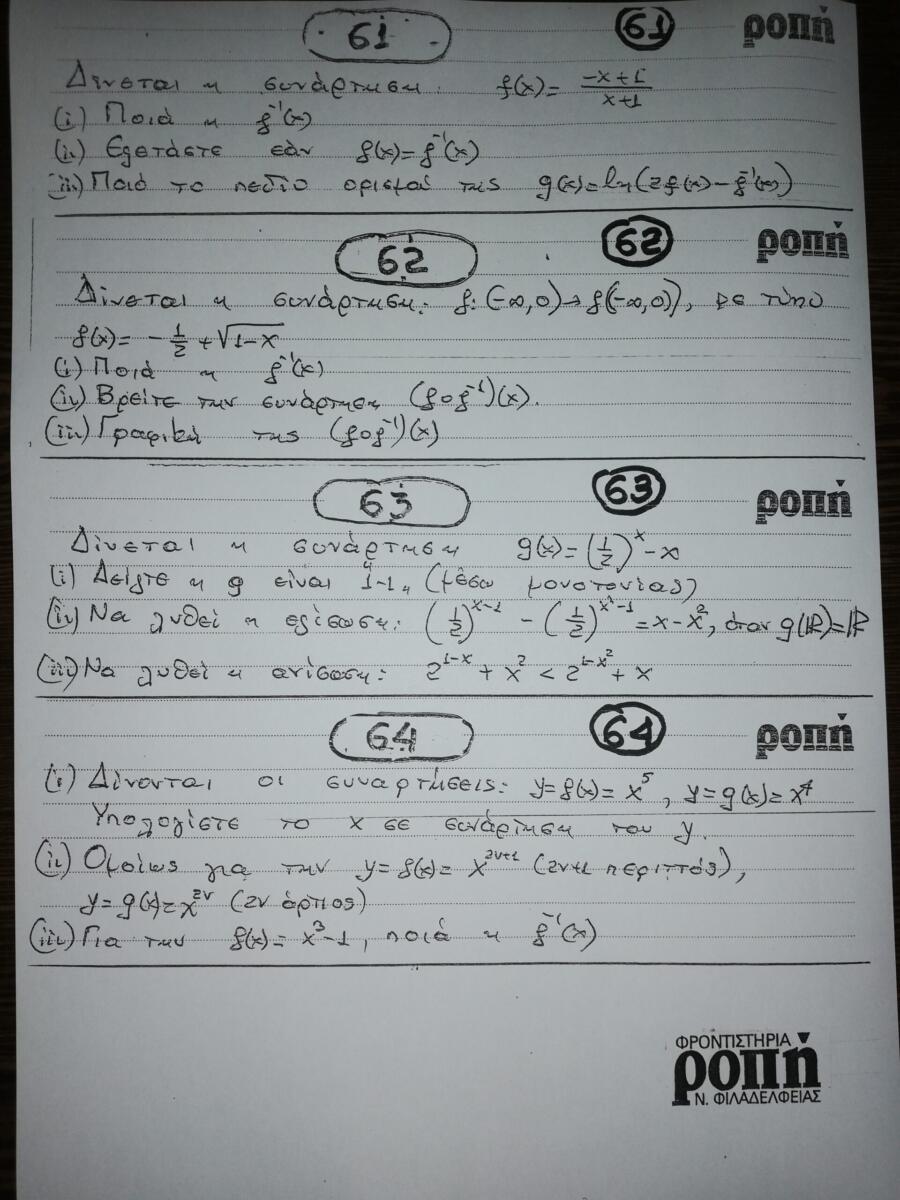 61 61 ροπή
Δίνεται η συνάρτηση: f(x) = (-x+1)/(x+1)
(i) Ποιά η f⁻¹(x)
(ii) Εξετάστε εάν f(x) = f⁻¹(x)
(iii) Ποιό το πεδίο ορισμού της g(x) = ln(2f(x) - f⁻¹(x))
62 62 ροπή
Δίνεται η συνάρτηση: f: (-∞,0) → f((-∞,0)), με τύπο
f(x) = -1/2 + √(1-x)
(i) Ποιά η f⁻¹(x)
(ii) Βρείτε την συνάρτηση (fof⁻¹)(x).
(iii) Γραφική της (fof⁻¹)(x)
63 63 ροπή
Δίνεται η συνάρτηση g(x) = (1/2)ˣ - x
(i) Δείξτε η g είναι "1-1" (μέσω μονοτονίας)
(ii) Να λυθεί η εξίσωση: (1/2)^(x-1) - (1/2)^(x²-1) = x - x², όταν g(ℝ) = ℝ
(iii) Να λυθεί η ανίσωση: 2^(1-x) + x² < 2^(1-x²) + x
64 64 ροπή
(i) Δίνονται οι συναρτήσεις: y = f(x) = x⁵, y = g(x) = x⁴
Υπολογίστε το x σε συνάρτηση του y.
(ii) Ομοίως για την y = f(x) = x^(2ν+1) (2ν+1 περιττός),
y = g(x) = x^(2ν) (2ν άρτιος)
(iii) Για την f(x) = x³ - 1, ποιά η f⁻¹(x)
ΦΡΟΝΤΙΣΤΗΡΙΑ
ροπή
Ν. ΦΙΛΑΔΕΛΦΕΙΑΣ